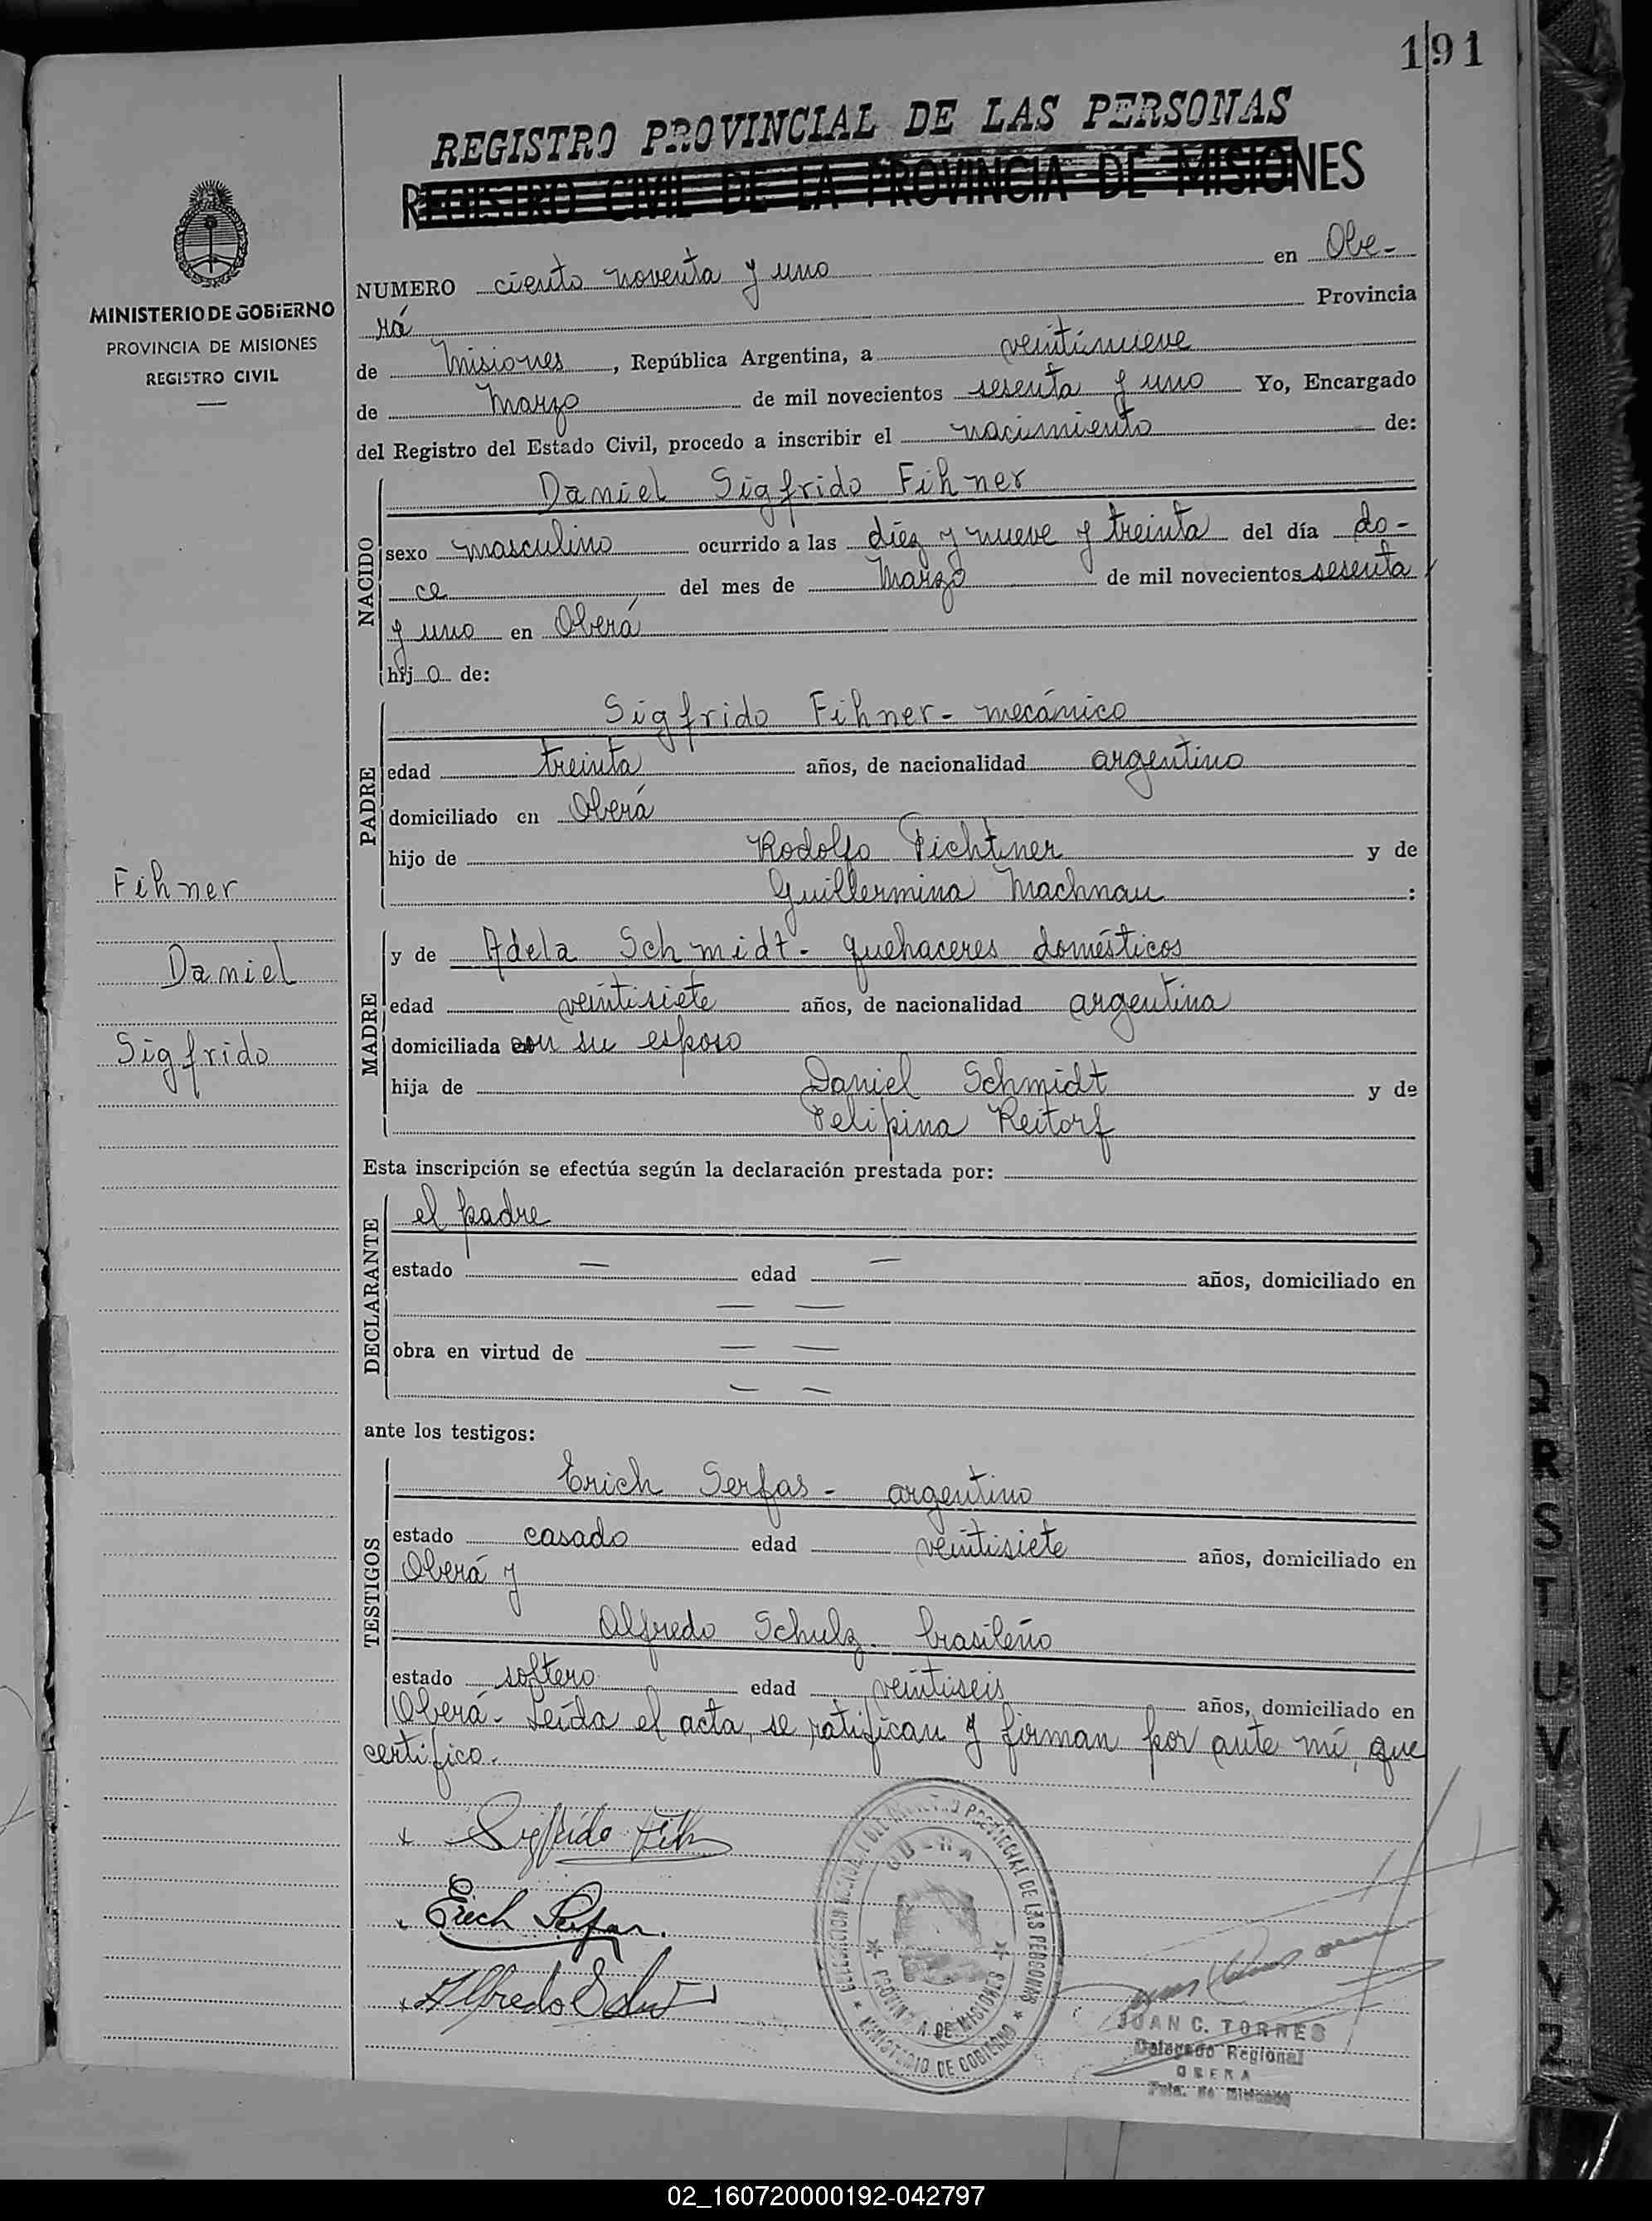 191
REGISTRO PROVINCIAL DE LAS PERSONAS
REGISTRO CIVIL DE LA PROVINCIA DE MISIONES
MINISTERIO DE GOBIERNO
PROVINCIA DE MISIONES
REGISTRO CIVIL
NUMERO ciento noventa y uno en Obe-
rá Provincia
de Misiones, República Argentina, a veintinueve
de Marzo de mil novecientos sesenta y uno Yo, Encargado
del Registro del Estado Civil, procedo a inscribir el nacimiento de:
NACIDO
Daniel Sigfrido Fihner
sexo masculino ocurrido a las diez y nueve y treinta del día do-
ce del mes de Marzo de mil novecientos sesenta
y uno en Oberá
hijo de:
PADRE
Sigfrido Fihner - mecánico
edad treinta años, de nacionalidad argentino
domiciliado en Oberá
hijo de Rodolfo Fichtner y de
Guillermina Machnau :
Fihner
Daniel
Sigfrido
MADRE
y de Adela Schmidt - quehaceres domésticos
edad veintisiete años, de nacionalidad argentina
domiciliada con su esposo
hija de Daniel Schmidt y de
Felipina Reitorf
Esta inscripción se efectúa según la declaración prestada por:
DECLARANTE
el padre
estado — edad — años, domiciliado en
— —
obra en virtud de — —
— —
ante los testigos:
TESTIGOS
Erich Serfas - argentino
estado casado edad veintisiete años, domiciliado en
Oberá y
Alfredo Schulz - brasileño
estado soltero edad veintiseis años, domiciliado en
Oberá - Leída el acta, se ratifican y firman por ante mí, que
certifico.
Sigfrido Fih
Erich Serfas.
Alfredo Schulz
DELEGACION REGIONAL DEL REGISTRO PROVINCIAL DE LAS PERSONAS
OBERA
PROVINCIA DE MISIONES
MINISTERIO DE GOBIERNO
JUAN C. TORRES
Delegado Regional
OBERA
Pcia. de Misiones
R
S
T
U
V
Z
02_160720000192-042797